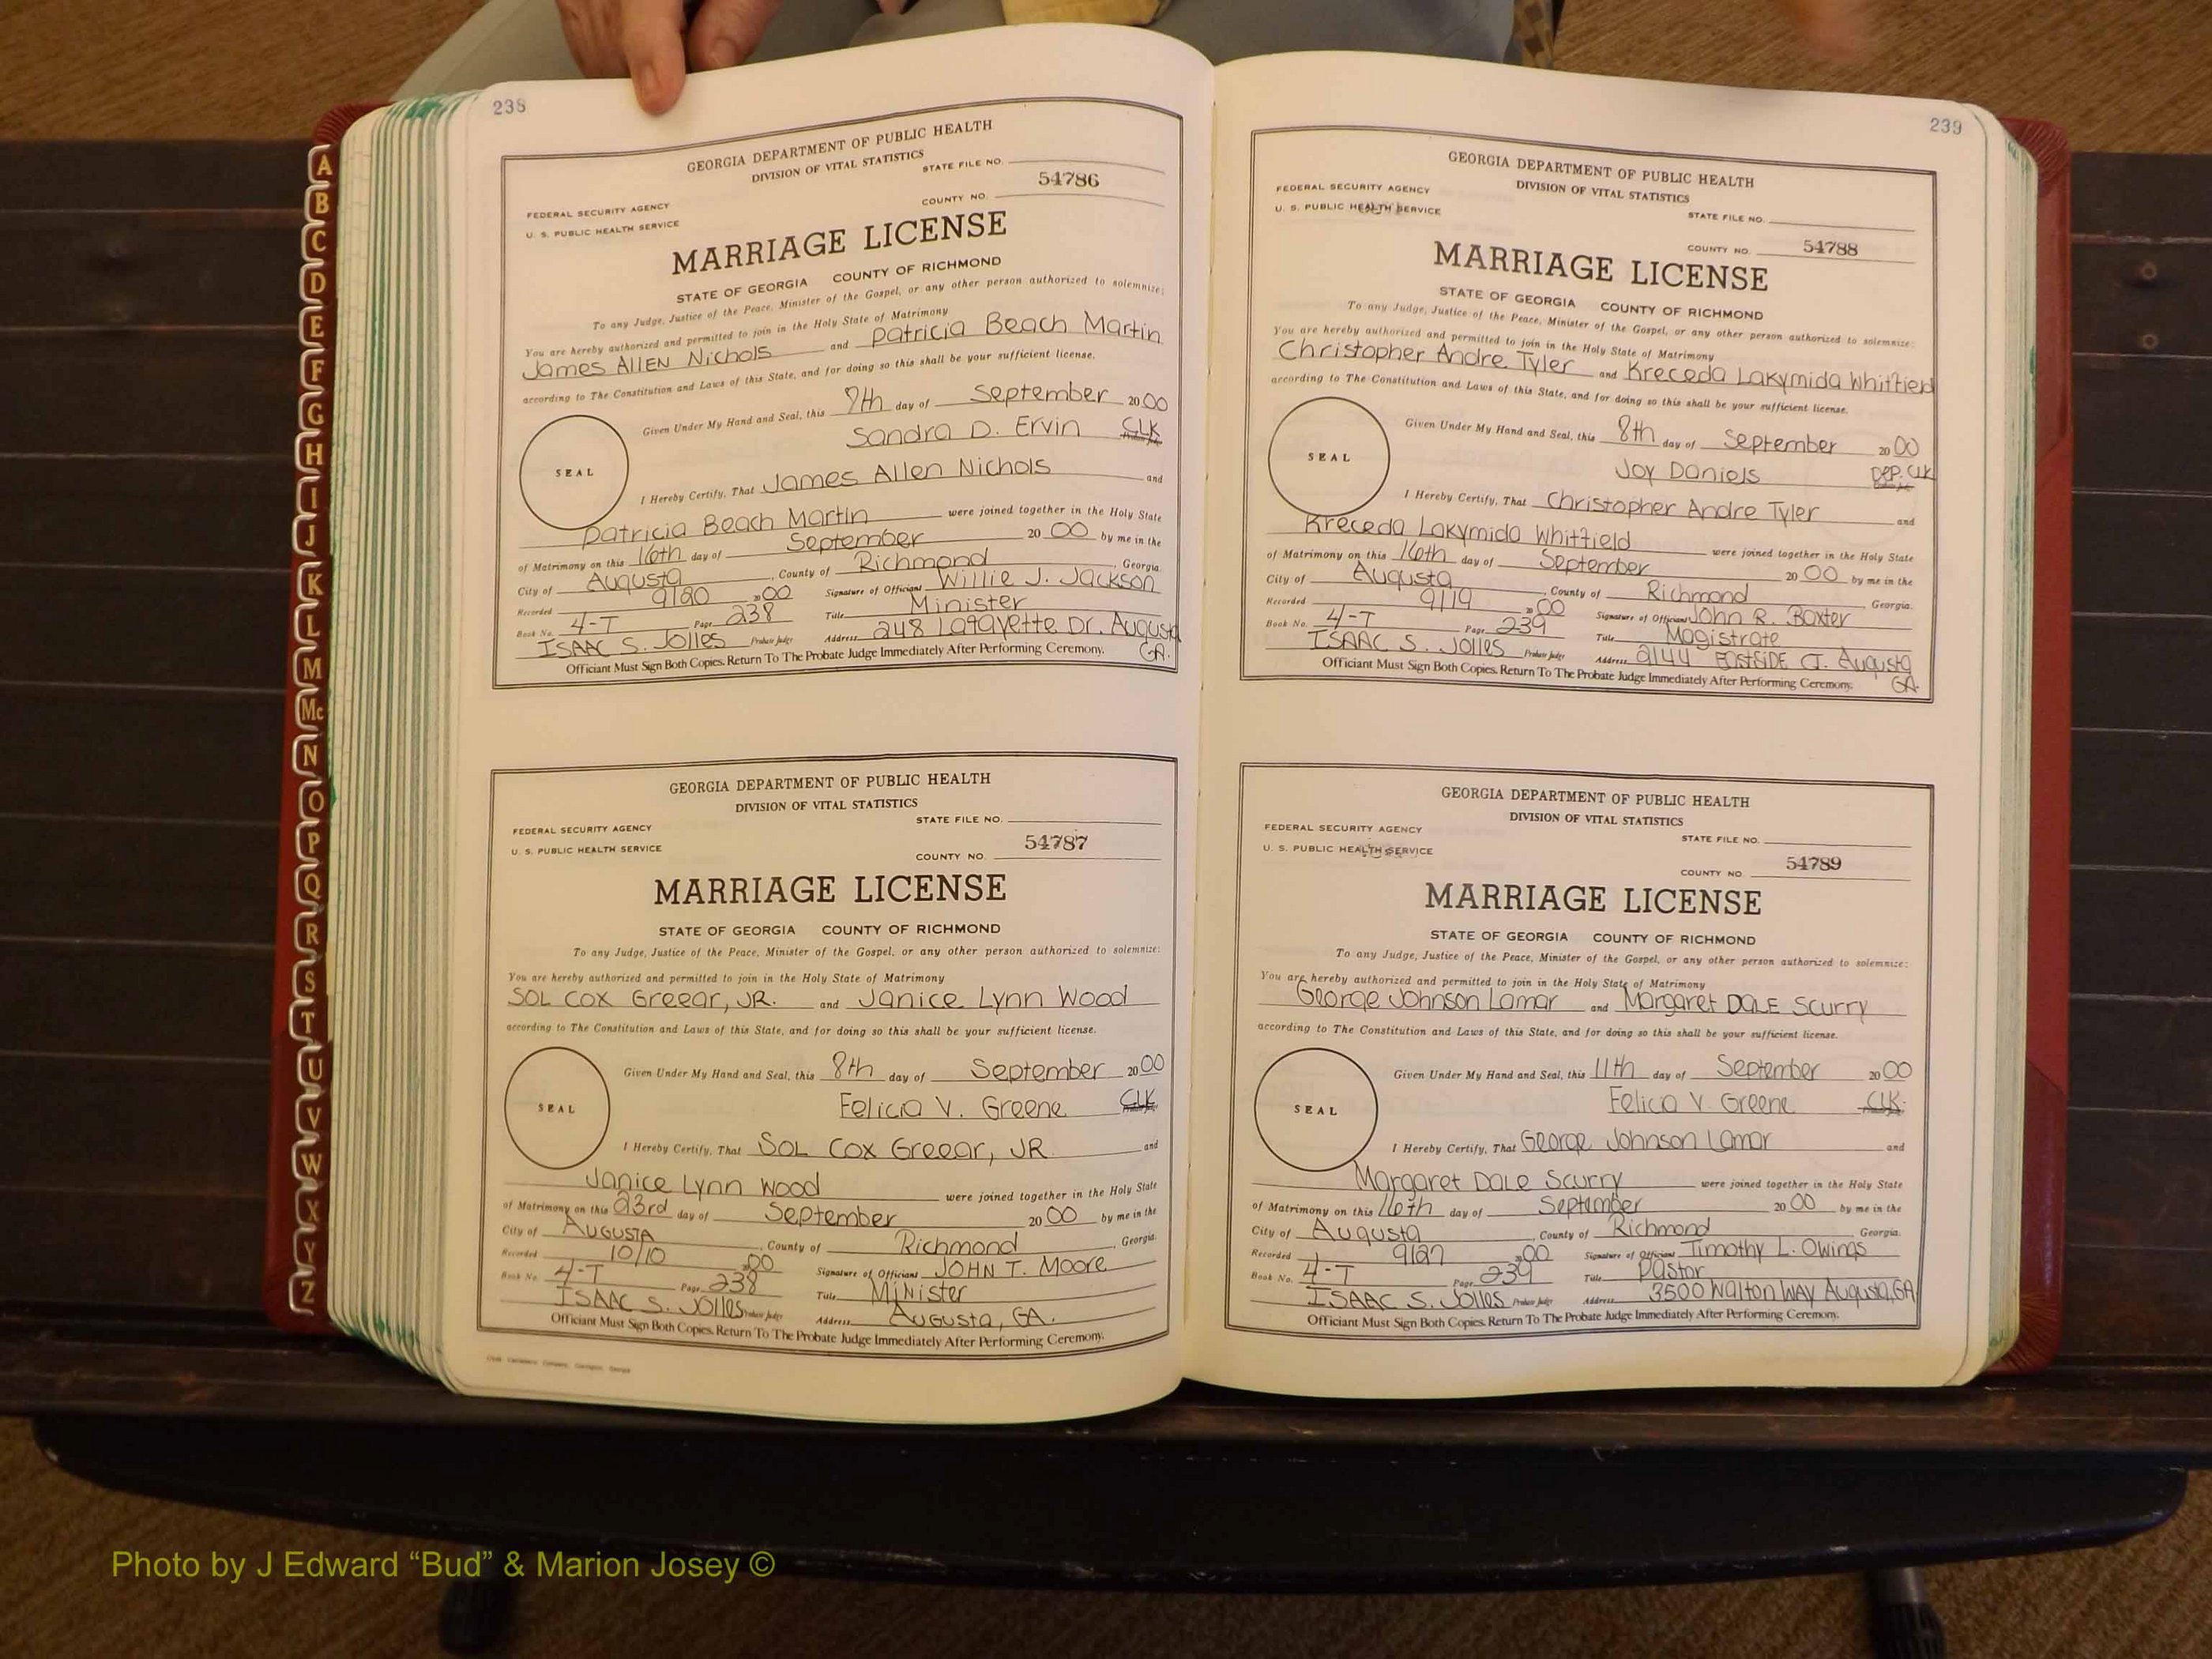 A
B
C
D
E
F
G
H
I
J
K
L
M
Mc
N
O
P
Q
R
S
T
U
V
W
X
Y
Z
238
GEORGIA DEPARTMENT OF PUBLIC HEALTH
DIVISION OF VITAL STATISTICS
STATE FILE NO.
FEDERAL SECURITY AGENCY
U. S. PUBLIC HEALTH SERVICE
COUNTY NO. 54786
MARRIAGE LICENSE
STATE OF GEORGIA COUNTY OF RICHMOND
To any Judge, Justice of the Peace, Minister of the Gospel, or any other person authorized to solemnize:
You are hereby authorized and permitted to join in the Holy State of Matrimony
James ALLEN Nichols and Patricia Beach Martin
according to The Constitution and Laws of this State, and for doing so this shall be your sufficient license.
Given Under My Hand and Seal, this 7th day of September 2000
Sandra D. Ervin CLK
SEAL
I Hereby Certify, That James Allen Nichols and
Patricia Beach Martin were joined together in the Holy State
of Matrimony on this 16th day of September 2000 by me in the
City of Augusta, County of Richmond, Georgia.
Recorded 9/20 2000 Signature of Officiant Willie J. Jackson
Book No. 4-T Page 238 Title Minister
ISAAC S. Jolles Probate Judge Address 248 Lafayette Dr. Augusta
GA.
Officiant Must Sign Both Copies. Return To The Probate Judge Immediately After Performing Ceremony.
GEORGIA DEPARTMENT OF PUBLIC HEALTH
DIVISION OF VITAL STATISTICS
STATE FILE NO.
FEDERAL SECURITY AGENCY
U. S. PUBLIC HEALTH SERVICE
COUNTY NO. 54787
MARRIAGE LICENSE
STATE OF GEORGIA COUNTY OF RICHMOND
To any Judge, Justice of the Peace, Minister of the Gospel, or any other person authorized to solemnize:
You are hereby authorized and permitted to join in the Holy State of Matrimony
SOL COX Greear, JR. and Janice Lynn Wood
according to The Constitution and Laws of this State, and for doing so this shall be your sufficient license.
Given Under My Hand and Seal, this 8th day of September 2000
Felicia V. Greene CLK
SEAL
I Hereby Certify, That SOL COX Greear, JR. and
Janice Lynn Wood were joined together in the Holy State
of Matrimony on this 23rd day of September 2000 by me in the
City of AUGUSTA, County of Richmond, Georgia.
Recorded 10/10 2000 Signature of Officiant JOHN T. Moore
Book No. 4-T Page 238 Title Minister
ISAAC S. Jolles Probate Judge Address Augusta, GA.
Officiant Must Sign Both Copies. Return To The Probate Judge Immediately After Performing Ceremony.
239
GEORGIA DEPARTMENT OF PUBLIC HEALTH
DIVISION OF VITAL STATISTICS
FEDERAL SECURITY AGENCY
U. S. PUBLIC HEALTH SERVICE
STATE FILE NO.
COUNTY NO. 54788
MARRIAGE LICENSE
STATE OF GEORGIA COUNTY OF RICHMOND
To any Judge, Justice of the Peace, Minister of the Gospel, or any other person authorized to solemnize:
You are hereby authorized and permitted to join in the Holy State of Matrimony
Christopher Andre Tyler and Kreceda Lakymida Whitfield
according to The Constitution and Laws of this State, and for doing so this shall be your sufficient license.
Given Under My Hand and Seal, this 8th day of September 2000
Joy Daniels DEP. CLK
SEAL
I Hereby Certify, That Christopher Andre Tyler and
Kreceda Lakymida Whitfield were joined together in the Holy State
of Matrimony on this 16th day of September 2000 by me in the
City of Augusta, County of Richmond, Georgia.
Recorded 9/19 2000 Signature of Officiant John R. Baxter
Book No. 4-T Page 239 Title Magistrate
ISAAC S. Jolles Probate Judge Address 2144 EASTSIDE CT. Augusta
GA.
Officiant Must Sign Both Copies. Return To The Probate Judge Immediately After Performing Ceremony.
GEORGIA DEPARTMENT OF PUBLIC HEALTH
DIVISION OF VITAL STATISTICS
FEDERAL SECURITY AGENCY
U. S. PUBLIC HEALTH SERVICE
STATE FILE NO.
COUNTY NO. 54789
MARRIAGE LICENSE
STATE OF GEORGIA COUNTY OF RICHMOND
To any Judge, Justice of the Peace, Minister of the Gospel, or any other person authorized to solemnize:
You are hereby authorized and permitted to join in the Holy State of Matrimony
George Johnson Lamar and Margaret DALE Scurry
according to The Constitution and Laws of this State, and for doing so this shall be your sufficient license.
Given Under My Hand and Seal, this 11th day of September 2000
Felicia V. Greene CLK.
SEAL
I Hereby Certify, That George Johnson Lamar and
Margaret Dale Scurry were joined together in the Holy State
of Matrimony on this 16th day of September 2000 by me in the
City of Augusta, County of Richmond, Georgia.
Recorded 9/27 2000 Signature of Officiant Timothy L. Owings
Book No. 4-T Page 239 Title Pastor
ISAAC S. Jolles Probate Judge Address 3500 Walton Way Augusta, GA
Officiant Must Sign Both Copies. Return To The Probate Judge Immediately After Performing Ceremony.
Photo by J Edward “Bud” & Marion Josey ©